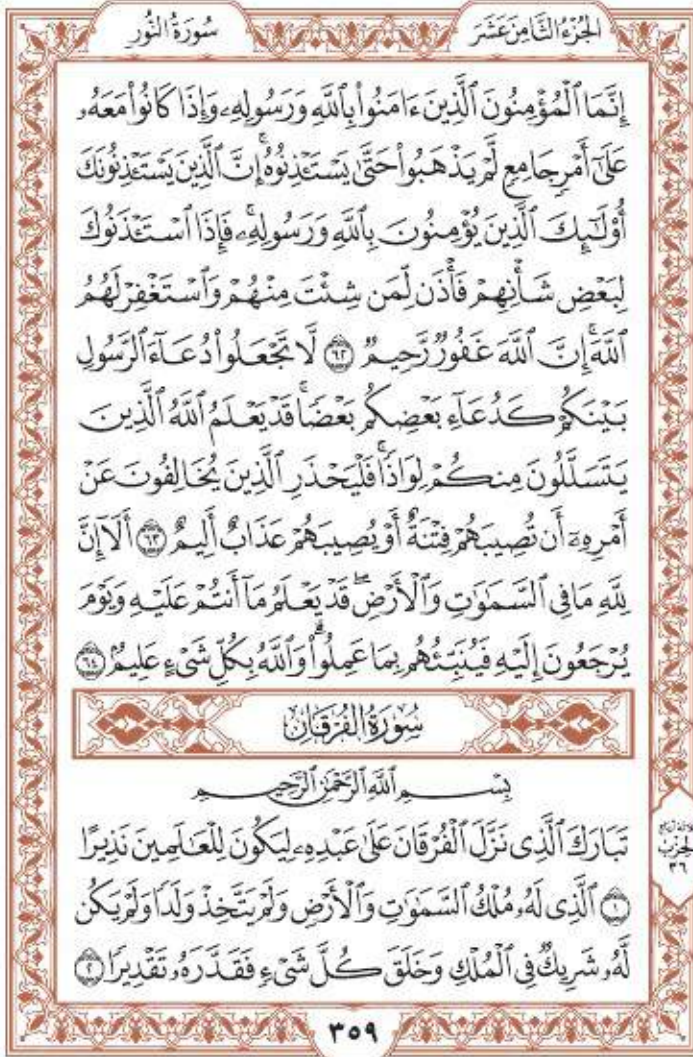 الجُزْءُ الثَّامِنَ عَشَرَ
سُورَةُ النُّور
إِنَّمَا ٱلْمُؤْمِنُونَ ٱلَّذِينَ ءَامَنُوا۟ بِٱللَّهِ وَرَسُولِهِۦ وَإِذَا كَانُوا۟ مَعَهُۥ
عَلَىٰٓ أَمْرٍ جَامِعٍ لَّمْ يَذْهَبُوا۟ حَتَّىٰ يَسْتَـْٔذِنُوهُ ۚ إِنَّ ٱلَّذِينَ يَسْتَـْٔذِنُونَكَ
أُو۟لَـٰٓئِكَ ٱلَّذِينَ يُؤْمِنُونَ بِٱللَّهِ وَرَسُولِهِۦ ۚ فَإِذَا ٱسْتَـْٔذَنُوكَ
لِبَعْضِ شَأْنِهِمْ فَأْذَن لِّمَن شِئْتَ مِنْهُمْ وَٱسْتَغْفِرْ لَهُمُ
ٱللَّهَ ۚ إِنَّ ٱللَّهَ غَفُورٌ رَّحِيمٌ ٦٢ لَّا تَجْعَلُوا۟ دُعَآءَ ٱلرَّسُولِ
بَيْنَكُمْ كَدُعَآءِ بَعْضِكُم بَعْضًا ۚ قَدْ يَعْلَمُ ٱللَّهُ ٱلَّذِينَ
يَتَسَلَّلُونَ مِنكُمْ لِوَاذًا ۚ فَلْيَحْذَرِ ٱلَّذِينَ يُخَالِفُونَ عَنْ
أَمْرِهِۦٓ أَن تُصِيبَهُمْ فِتْنَةٌ أَوْ يُصِيبَهُمْ عَذَابٌ أَلِيمٌ ٦٣ أَلَآ إِنَّ
لِلَّهِ مَا فِى ٱلسَّمَـٰوَٰتِ وَٱلْأَرْضِ ۖ قَدْ يَعْلَمُ مَآ أَنتُمْ عَلَيْهِ وَيَوْمَ
يُرْجَعُونَ إِلَيْهِ فَيُنَبِّئُهُم بِمَا عَمِلُوا۟ ۗ وَٱللَّهُ بِكُلِّ شَىْءٍ عَلِيمٌۢ ٦٤
سُورَةُ الفُرْقَانِ
بِسْمِ ٱللَّهِ ٱلرَّحْمَـٰنِ ٱلرَّحِيمِ
تَبَارَكَ ٱلَّذِى نَزَّلَ ٱلْفُرْقَانَ عَلَىٰ عَبْدِهِۦ لِيَكُونَ لِلْعَـٰلَمِينَ نَذِيرًا
١ ٱلَّذِى لَهُۥ مُلْكُ ٱلسَّمَـٰوَٰتِ وَٱلْأَرْضِ وَلَمْ يَتَّخِذْ وَلَدًا وَلَمْ يَكُن
لَّهُۥ شَرِيكٌ فِى ٱلْمُلْكِ وَخَلَقَ كُلَّ شَىْءٍ فَقَدَّرَهُۥ تَقْدِيرًا ٢
الحِزْبُ
٣٦
٣٥٩